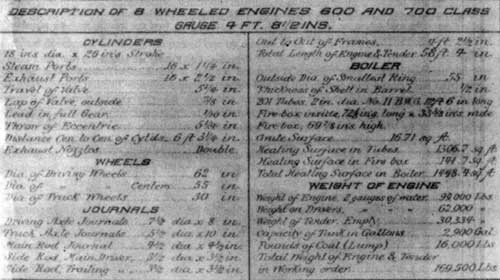 DESCRIPTION OF 8 WHEELED ENGINES 600 AND 700 CLASS
GAUGE 4 FT. 8½ INS.
CYLINDERS
18 ins dia. x 26 ins Stroke
Steam Ports 16 x 1¼ in.
Exhaust Ports 16 x 2½ in.
Travel of Valve 5¼ in.
Lap of Valve, outside ⅞ in
Lead in full Gear in.
Throw of Eccentric in.
Distance Cen. to Cen. of Cylds. 6 ft in.
Exhaust Nozzles Double.
WHEELS
Dia. of Driving Wheels 62 in
Dia. of " " Centers 55 in
Dia. of Truck Wheels 30 in
JOURNALS
Driving Axle Journals 7½ dia x 8 in.
Truck Axle Journals dia x 10 in.
Main Rod Journal 4½ dia x in.
Side Rod, Main Driver, dia x in.
Side Rod, Trailing " dia x in.
Out to Out of Frames ft. in.
Total Length of Engine & Tender 58 ft. 4 in.
BOILER
Outside Dia. of Smallest Ring 55 in
Thickness of Shell in Barrel ½ in.
201 Tubes, 2 in. dia. No. 11 B.W.G. ft 6 in long
Fire box inside long x ins wide
Fire box, ins high.
Grate Surface 16.71 sq. ft.
Heating Surface in Tubes 1306.7 sq. ft.
Heating Surface in Fire box 141.7 sq. ft.
Total Heating Surface in Boiler 1448.4 sq. ft.
WEIGHT OF ENGINE
Weight of Engine, 2 gauges of water 92000 Lbs
Weight on Drivers, 62000 "
Weight of Tender Empty 30,334 "
Capacity of Tank in Gallons 2,900 Gal.
Pounds of Coal (Lump) 16,000 Lbs
Total Weight of Engine & Tender
in Working order. 169,500 Lbs